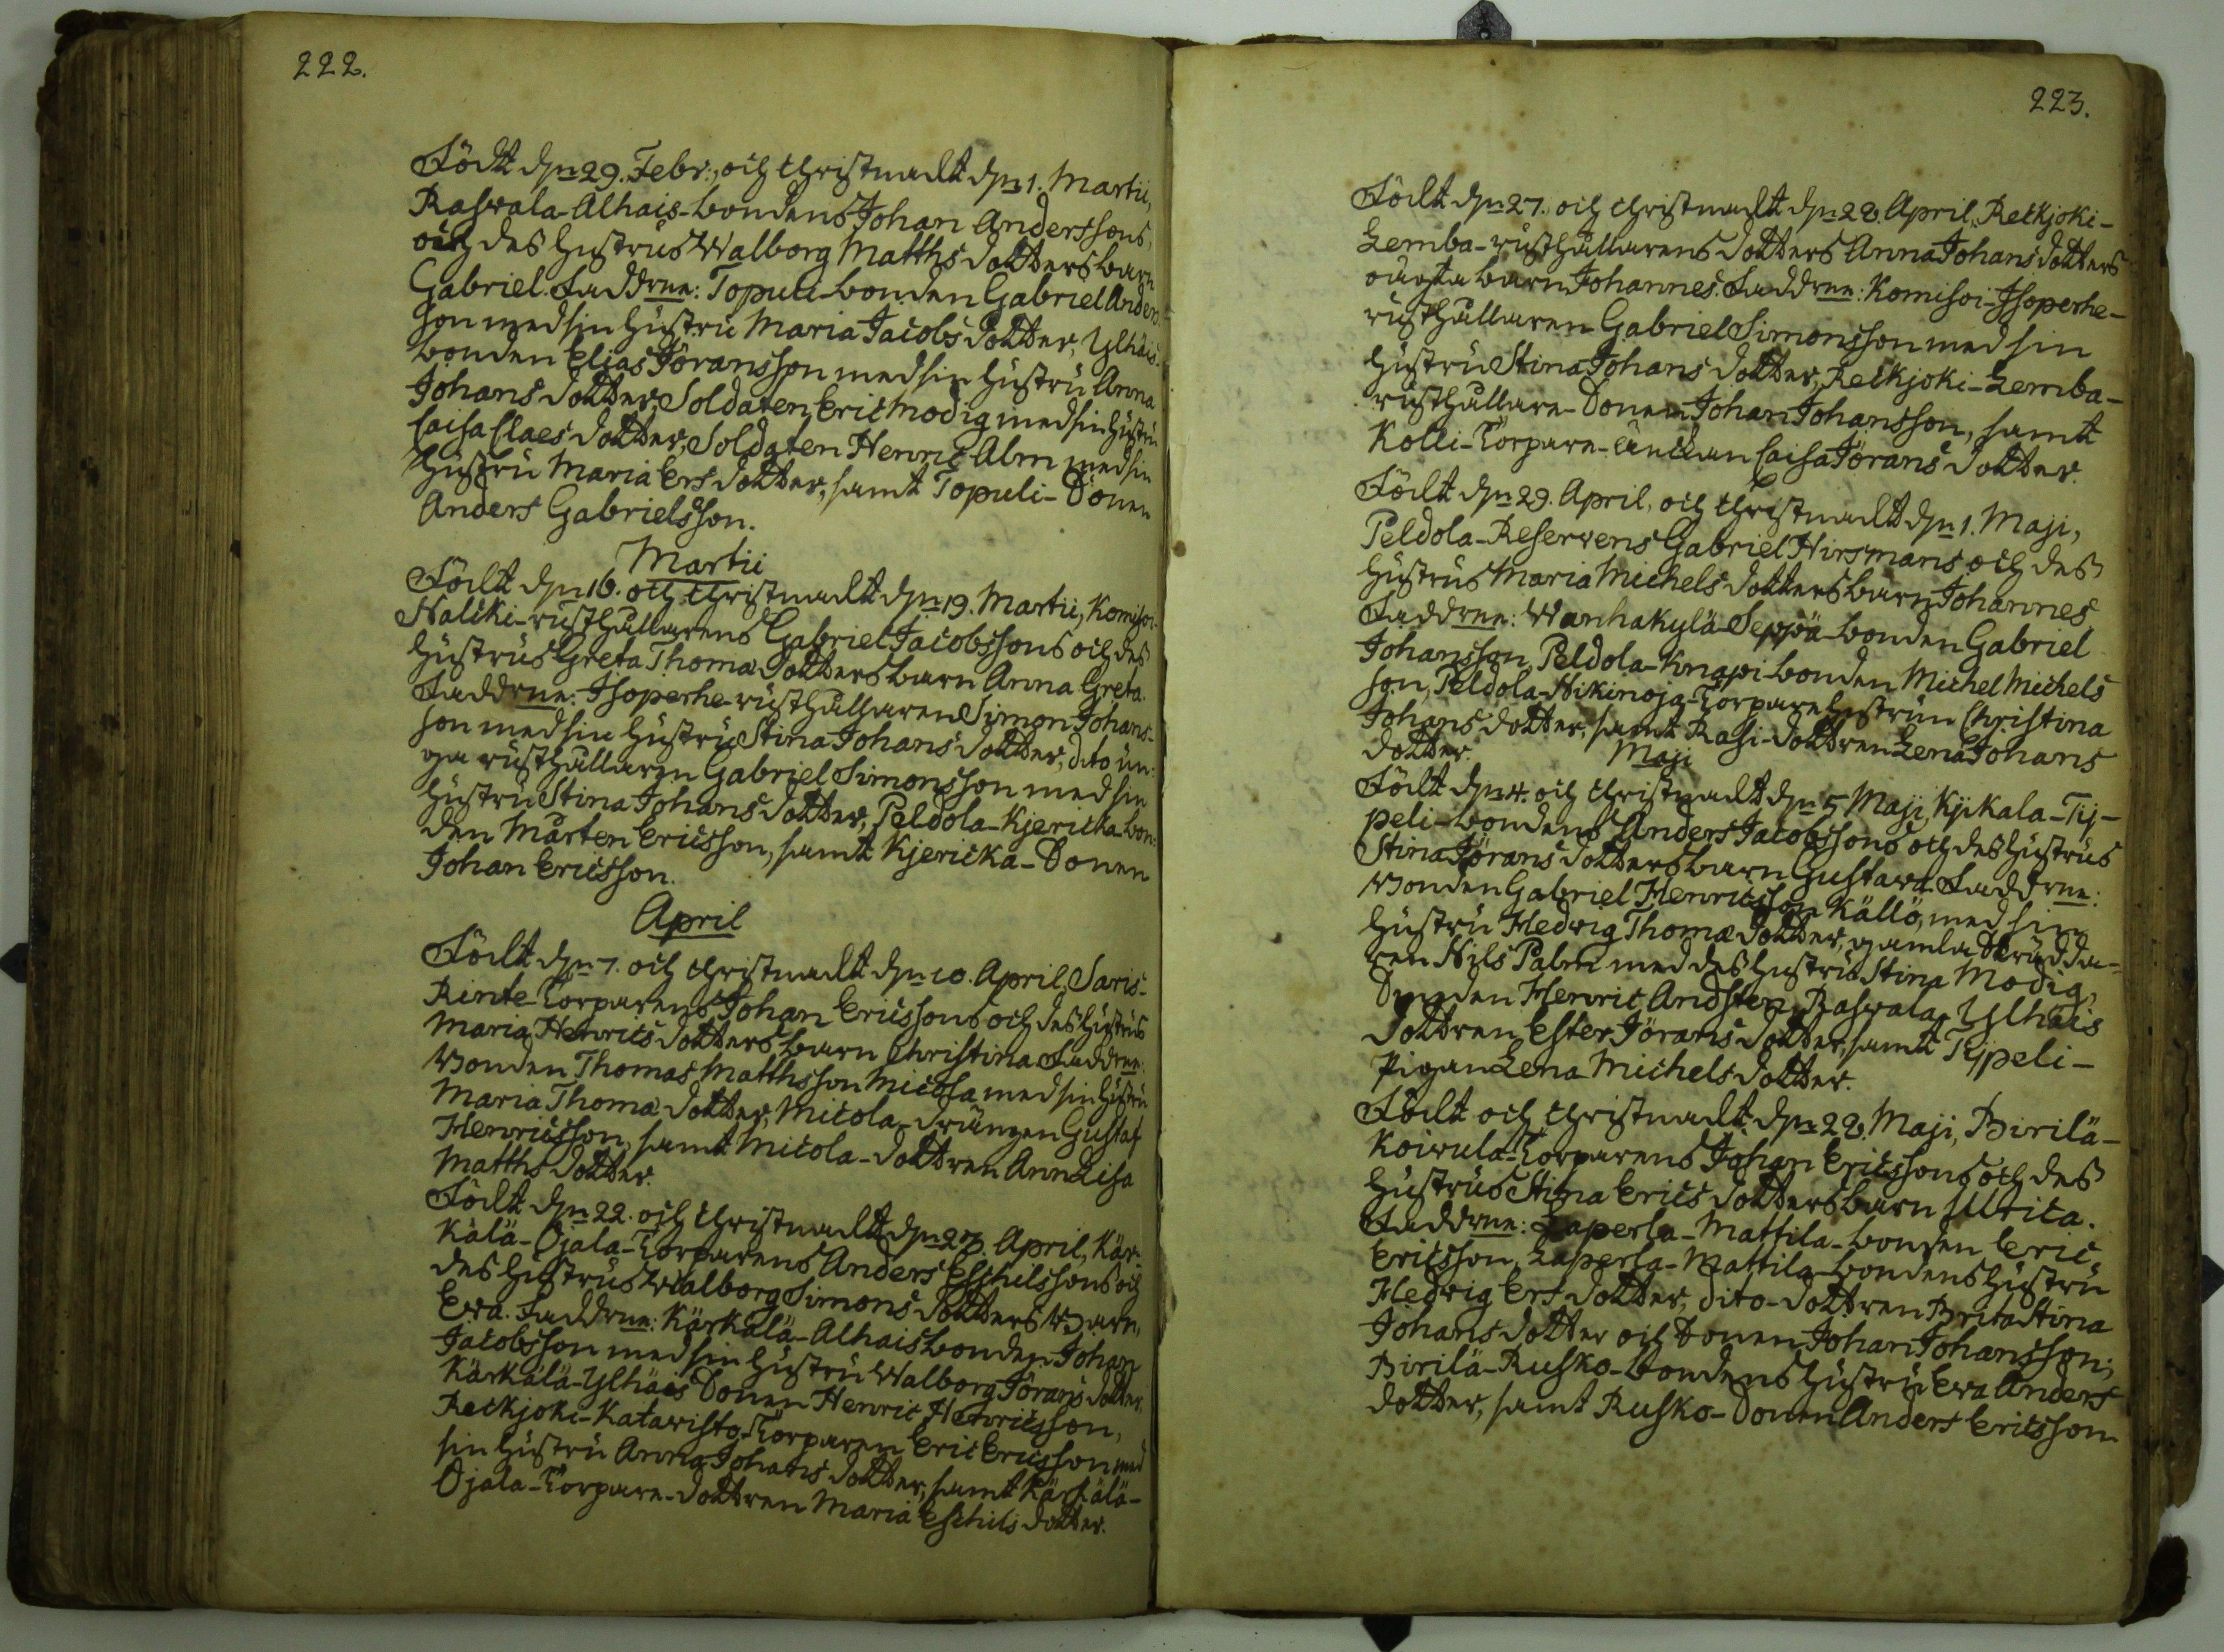 222.
Födt d:n 29. Febr:, och Christnadt d:n 1. Martii,
Raswala-Alhais-bondens Johan Anderssons,
och des hustrus Walborg Matths dotters barn
Gabriel. Faddrne: Topuli-bonden Gabriel Anders-
son med sin hustru Maria Jacobs dotter, Ylhäis-
bonden Elias Jöransson med sin hustru Anna
Johans dotter, Soldaten Eric Modig med sin hustru
Caisa Claes dotter, Soldaten Henric Alm med sin
hustru Maria Ers dotter, samt Topuli-Sonen
Anders Gabrielsson.
Martii
Födt d:n 16. och Christnadt d:n 19. Martii, Komisoi-
Nalcki-rusthållarens Gabriel Jacobssons och des
hustrus Greta Thomæ dotters barn Anna Greta.
Faddrne: Isoperhe-rusthållaren Simon Johans-
son med sin hustru Stina Johans dotter, dito un-
ga rusthållaren Gabriel Simonsson med sin
hustru Stina Johans dotter, Peldola-Kjericka-bon-
den Mårten Ericsson, samt Kjericka-Sonen
Johan Ericsson.
April
Födt d:n 7. och Christnadt d:n 10. April, Saris-
Rinte-Torparens Johan Ericssons och des hustrus
Maria Henrics dotters barn Christina. Faddrne:
Bonden Thomas Matthsson Micola med sin hustru
Maria Thomæ dotter, Micola-drängen Gustaf
Henricsson, samt Micola-dottren Ann Lisa
Matths dotter.
Födt d:n 22. och Christnadt d:n 23. April, Kär-
kälä-Ojala-Torparens Anders Eschilssons och
des hustrus Walborg Simons dotters Barn,
Eva. Faddrne: Kärkälä-Alhais bonden Johan
Jacobsson med sin hustru Walborg Jörans dotter,
Kärkälä-Ylhäis Sonen Henric Henricsson,
Reckjoki-Katawisto-Torparen Eric Ericsson med
sin hustru Anna Johans dotter, samt Kärkälä-
Ojala-Torpare-dottren Maria Eschils dotter.
223.
Födt d:n 27. och Christnadt d:n 28. April, Reckjoki-
Lemba-rusthållarens dotters Anna Johans dotters
oägta barn Johannes. Faddrne: Komisoi-Isoperhe-
rusthållaren Gabriel Simonsson med sin
hustru Stina Johans dotter, Reckjoki-Lemba-
rusthållare-Sonen Johan Johansson, samt
Kolli-Torpare-änckan Caisa Jörans dotter.
Födt d:n 29. April, och Christnadt d:n 1. Maji,
Peldola-Reservens Gabriel Hirsmans och des
hustrus Maria Michels dotters barn Johannes.
Faddrne: Wanhakylä-Seppä-bonden Gabriel
Johansson, Peldola-Knapi-bonden Michel Michels
son, Peldola-Hikinoja-Torpare hustrun Christina
Johans dotter, samt Rasi-dottren Lena Johans
dotter.
Maji
Födt d:n 4. och Christnadt d:n 5. Maji, Kjikala-Tij-
peli-bondens Anders Jacobssons och des hustrus
Stina Jörans dotters barn Gustava. Faddrne:
Bonden Gabriel Henricsson Källö, med sin
hustru Hedvig Thomæ dotter, gamla Skrädda-
ren Nils Palm med des hustru Stina Modig,
Smeden Henric Andsten, Raswala-Ylhäis
dottren Ester Jörans dotter, samt Tijpeli-
Pigan Lena Michels dotter.
Födt och Christnadt d:n 28. Maji, Pirilä-
Koivula-Torparens Johan Ericssons och des
hustrus Stina Erics dotters barn Ulrica.
Faddrne: Laperla-Mattila-bonden Eric
Ericsson, Laperla-Mattila-bondens hustru
Hedvig Ers dotter, dito-dottren Brita Stina
Johans dotter och Sonen Johan Johansson,
Pirilä-Rusko-bondens hustru Eva Anders
dotter, samt Rusko-Sonen Anders Ericsson